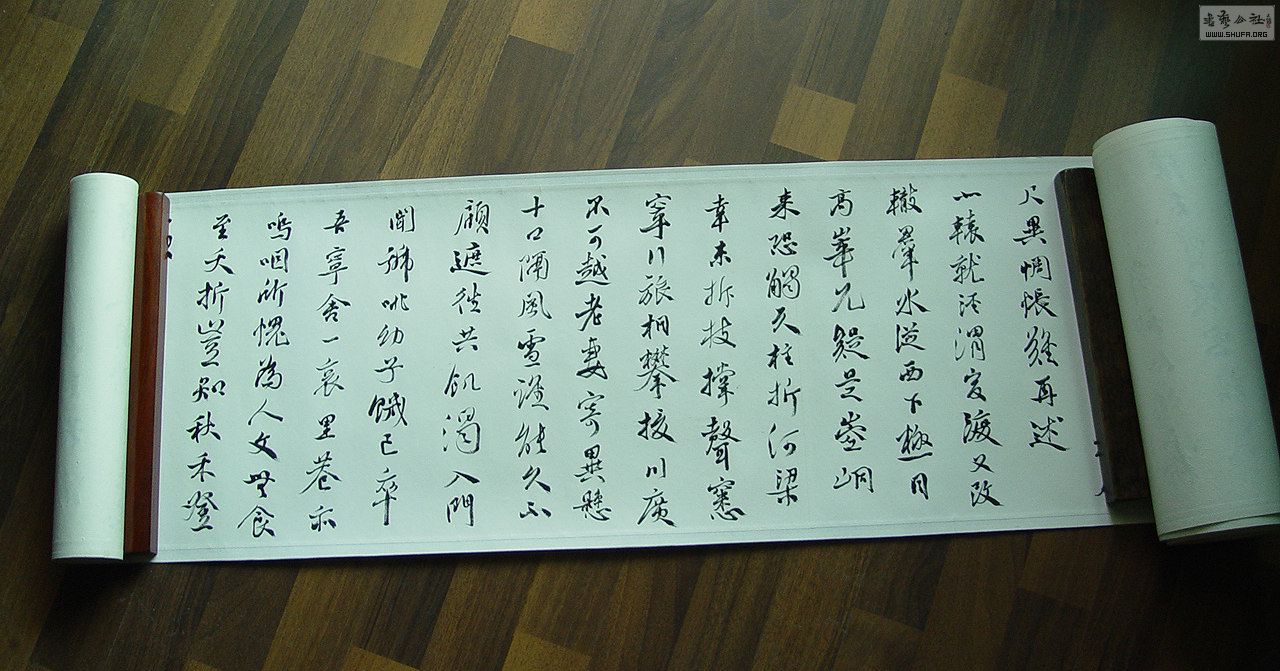 尺異惆悵難再述
北轅就涇渭官渡又改
轍羣水從西下極目
高崒兀疑是崆峒
来恐觸天柱折河梁
幸未拆枝撐聲窸
窣行旅相攀援川廣
不可越老妻寄異縣
十口隔風雪誰能久不
顧遮往共飢渴入門
聞號咷幼子餓已卒
吾寧舍一哀里巷亦
嗚咽所愧為人父無食
至夭折豈知秋禾登
书藝公社
WWW.SHUFA.ORG